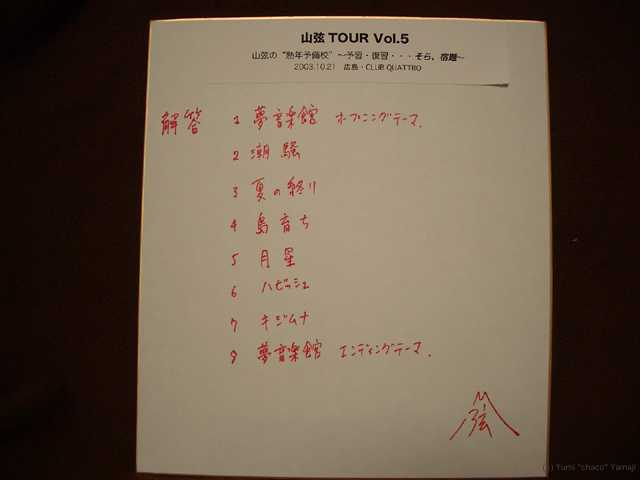 山弦 TOUR Vol.5
山弦の“熟年予備校”～予習・復習・・・そら、宿題～
2003.10.21 広島・CLUB QUATTRO
解答
1 夢音楽館 オープニングテーマ.
2 潮騒
3 夏の終り
4 島育ち
5 月星
6 ハピッシュ
7 キジムナ
8 夢音楽館 エンディングテーマ.
山弦
(c) Yumi "chaco" Yamaji